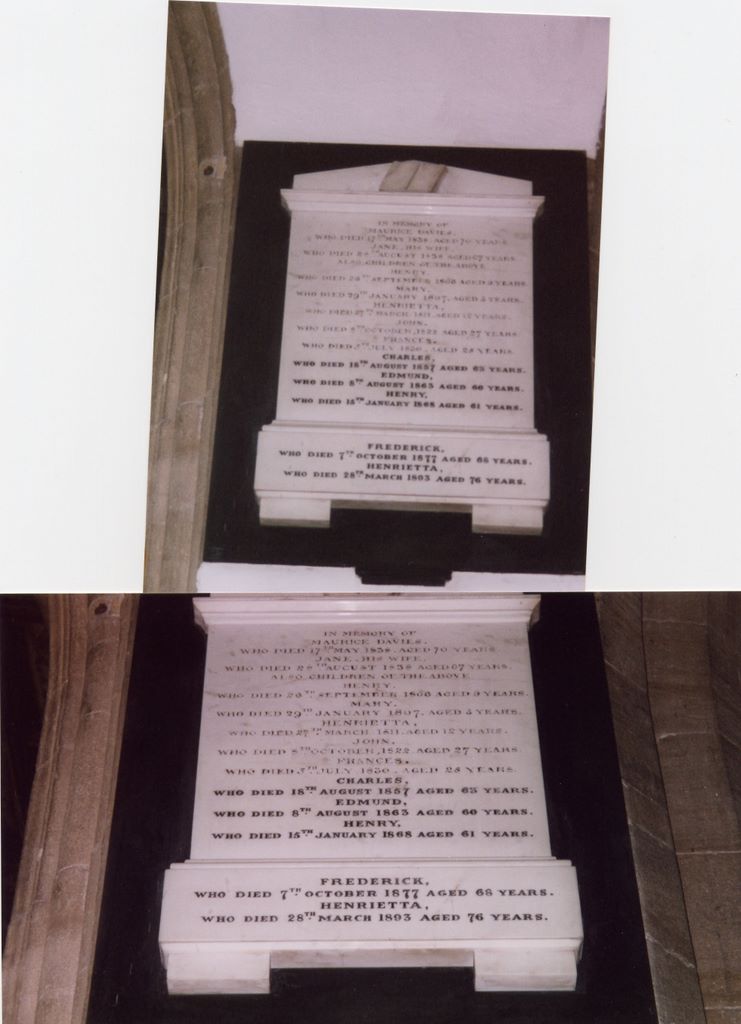 IN MEMORY OF
MAURICE DAVIES.
WHO DIED 17TH MAY 1838. AGED 70 YEARS
JANE, HIS WIFE.
WHO DIED 28TH AUGUST 1838 AGED 67 YEARS.
ALSO CHILDREN OF THE ABOVE
HENRY.
WHO DIED 26TH SEPTEMBER 1806 AGED YEARS.
MARY.
WHO DIED 29TH JANUARY 1807. AGED YEARS.
HENRIETTA,
WHO DIED 27TH MARCH 1811. AGED 12 YEARS.
JOHN.
WHO DIED 8TH OCTOBER, 1822 AGED 27 YEARS.
FRANCES.
WHO DIED JULY 1830. AGED 28 YEARS.
CHARLES,
WHO DIED 18TH AUGUST 1857 AGED 63 YEARS.
EDMUND,
WHO DIED 8TH AUGUST 1863 AGED 60 YEARS.
HENRY,
WHO DIED 15TH JANUARY 1868 AGED 61 YEARS.
FREDERICK,
WHO DIED 7TH OCTOBER 1877 AGED 68 YEARS.
HENRIETTA,
WHO DIED 28TH MARCH 1893 AGED 76 YEARS.
IN MEMORY OF
MAURICE DAVIES.
WHO DIED 17TH MAY 1838. AGED 70 YEARS
JANE, HIS WIFE.
WHO DIED 28TH AUGUST 1838 AGED 67 YEARS.
ALSO CHILDREN OF THE ABOVE
HENRY.
WHO DIED 26TH SEPTEMBER 1806 AGED YEARS.
MARY.
WHO DIED 29TH JANUARY 1807. AGED YEARS.
HENRIETTA,
WHO DIED 27TH MARCH 1811. AGED 12 YEARS.
JOHN.
WHO DIED 8TH OCTOBER, 1822 AGED 27 YEARS.
FRANCES.
WHO DIED JULY 1830. AGED 28 YEARS.
CHARLES,
WHO DIED 18TH AUGUST 1857 AGED 63 YEARS.
EDMUND,
WHO DIED 8TH AUGUST 1863 AGED 60 YEARS.
HENRY,
WHO DIED 15TH JANUARY 1868 AGED 61 YEARS.
FREDERICK,
WHO DIED 7TH OCTOBER 1877 AGED 68 YEARS.
HENRIETTA,
WHO DIED 28TH MARCH 1893 AGED 76 YEARS.